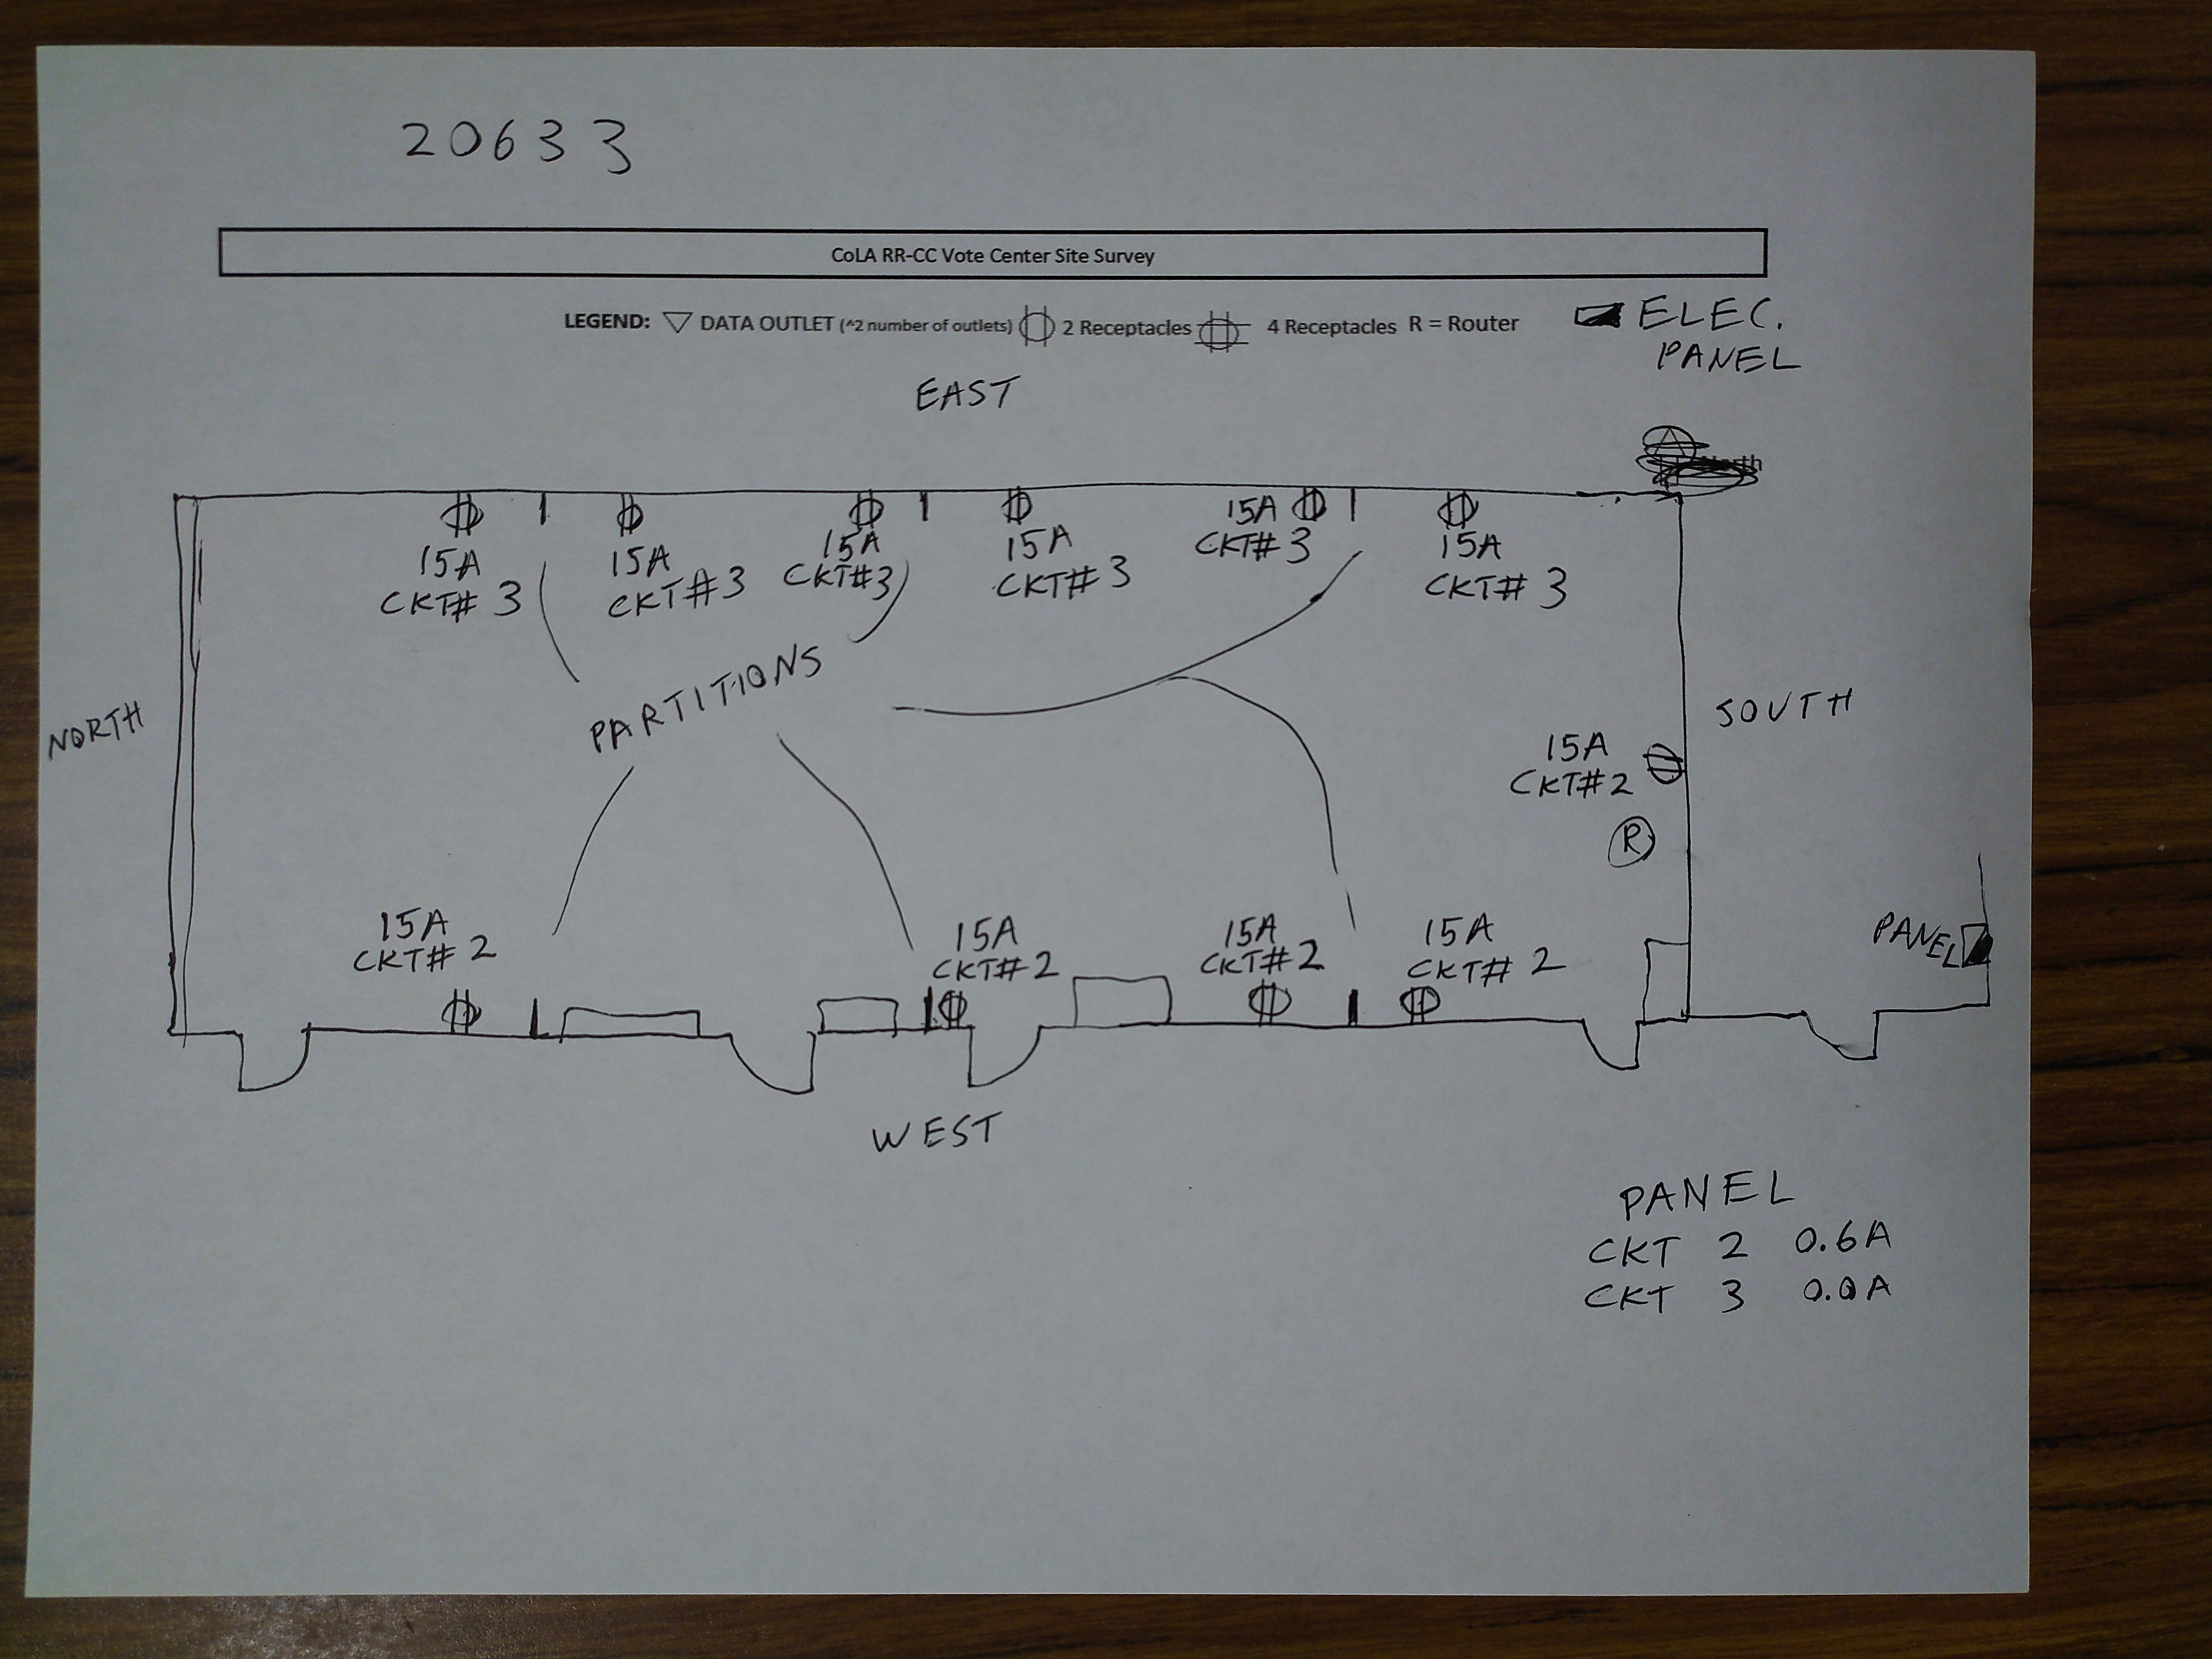 20633
CoLA RR-CC Vote Center Site Survey
LEGEND: DATA OUTLET (^2 number of outlets) 2 Receptacles 4 Receptacles R = Router
ELEC.
PANEL
EAST
15A
CKT# 3
15A
CKT#3
15A
CKT#3
15A
CKT# 3
15A
CKT# 3
15A
CKT# 3
PARTITIONS
NORTH
SOUTH
15A
CKT#2
R
PANEL
15A
CKT# 2
15A
CKT#2
15A
CKT#2
15A
CKT# 2
WEST
PANEL
CKT 2 0.6A
CKT 3 0.0A